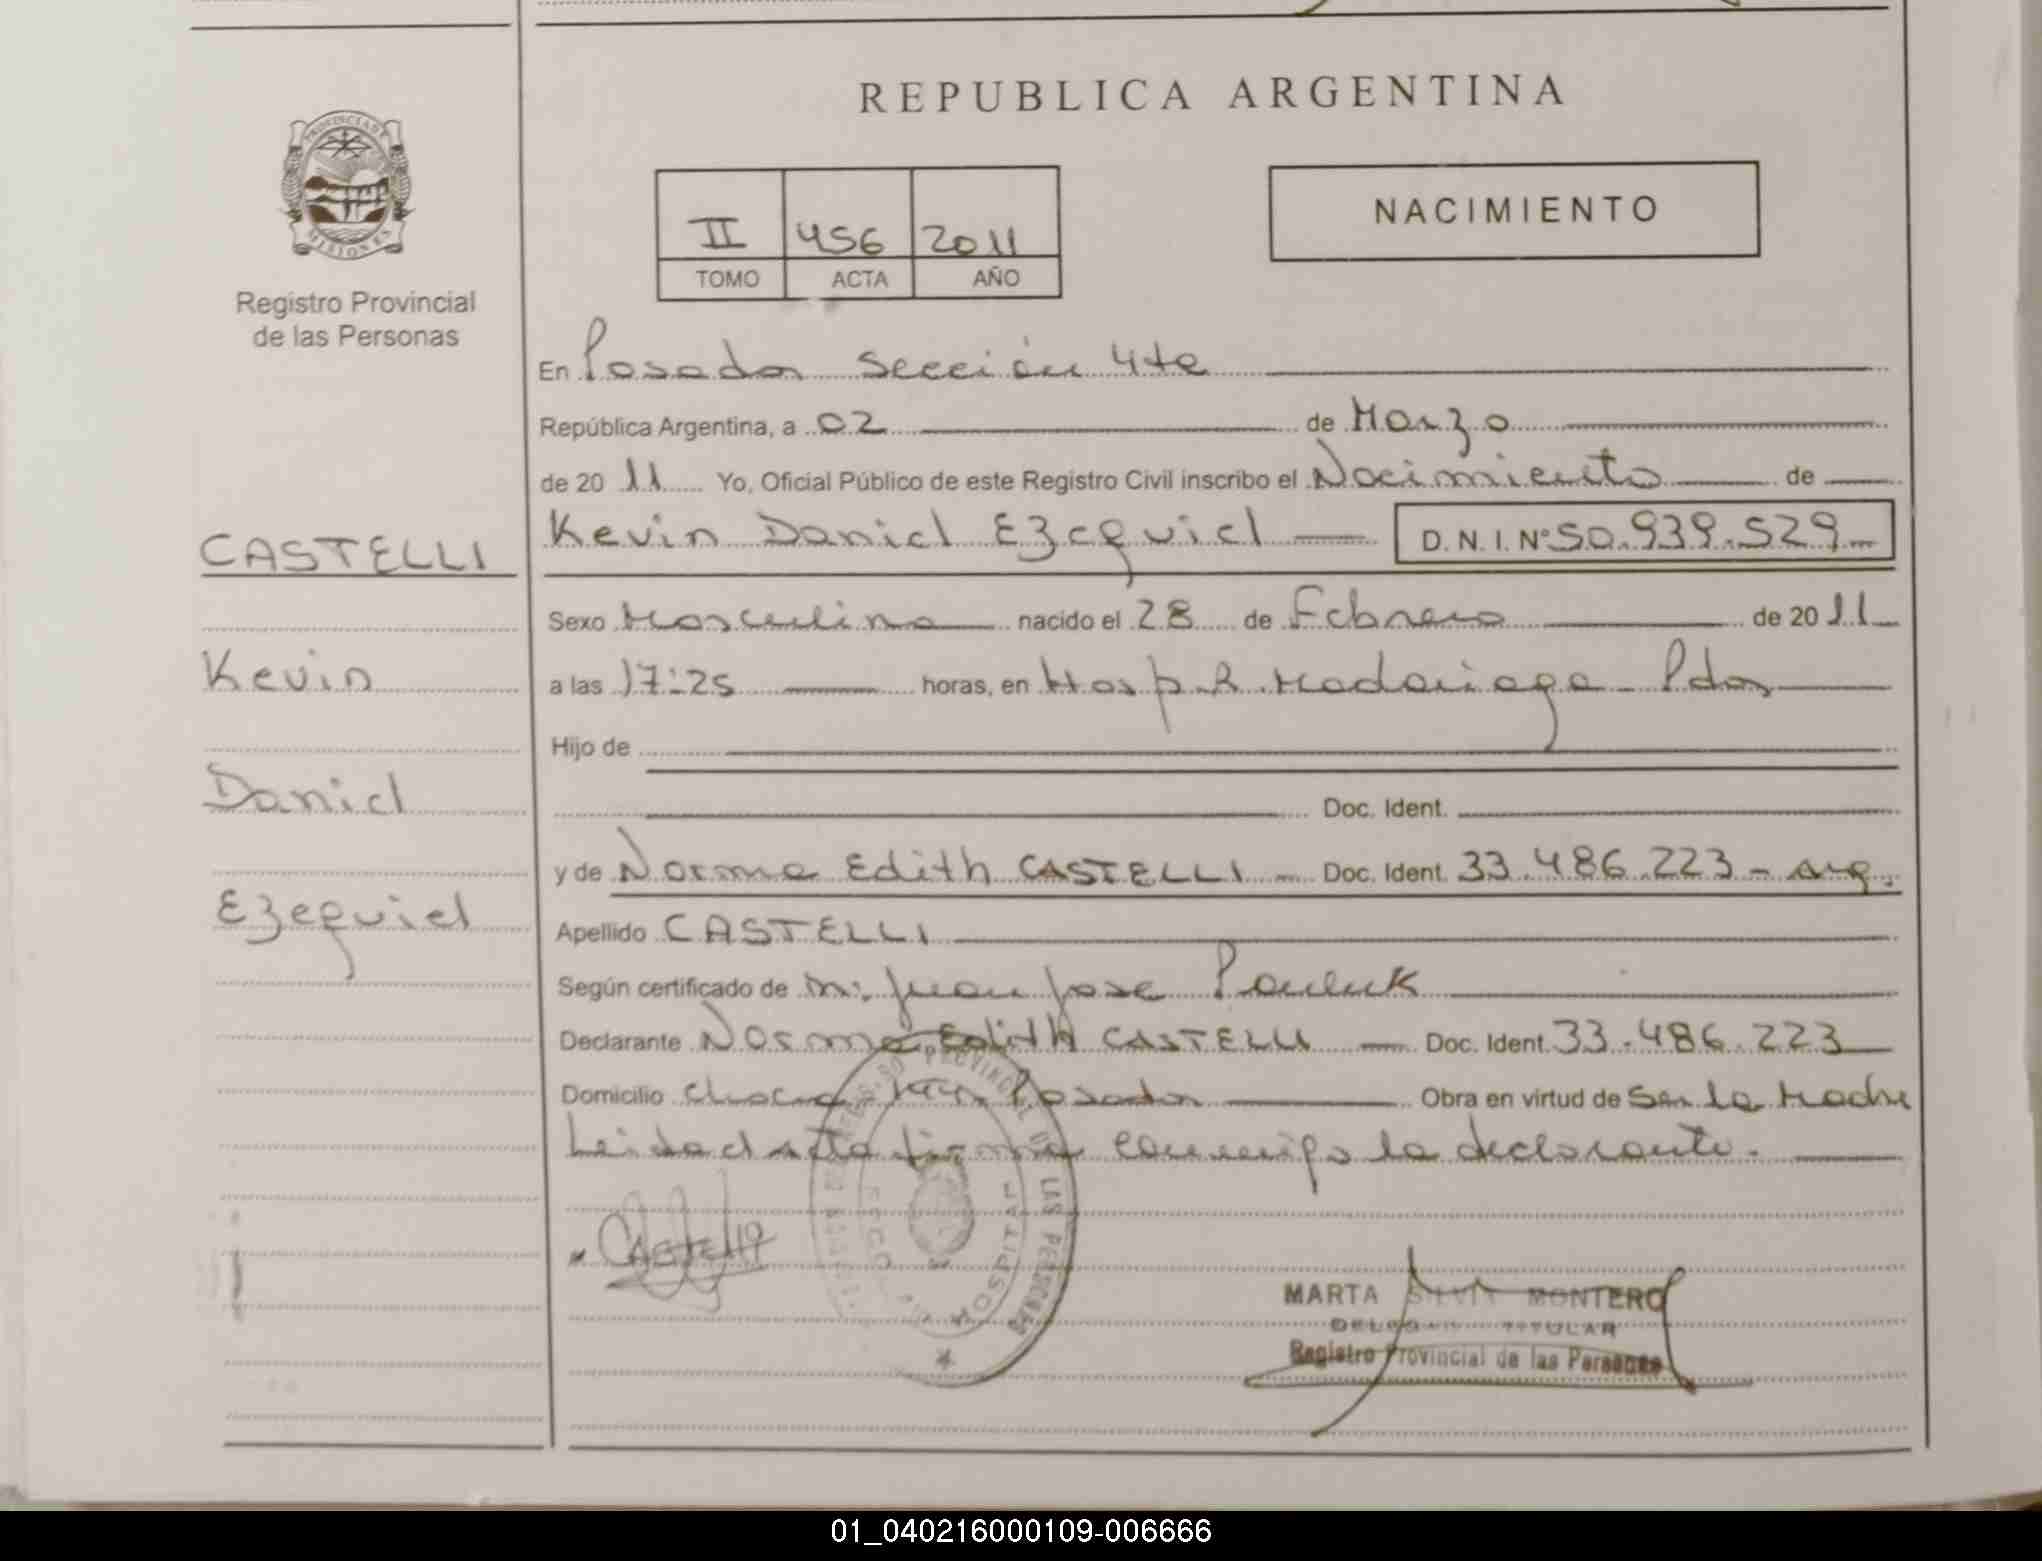 REPUBLICA ARGENTINA
PROVINCIA DE
MISIONES
Registro Provincial
de las Personas
II 456 2011
TOMO ACTA AÑO
NACIMIENTO
En Posadas Sección 4ta
República Argentina, a 02 de Marzo
de 2011 Yo, Oficial Público de este Registro Civil inscribo el Nacimiento de
CASTELLI
Kevin
Daniel
Ezequiel
Kevin Daniel Ezequiel D.N.I. Nº 50.939.529
Sexo Masculino nacido el 28 de Febrero de 2011
a las 17:25 horas, en Hosp. R. Madariaga Pdas
Hijo de
Doc. Ident.
y de Norma Edith CASTELLI Doc. Ident. 33.486.223 - Arg.
Apellido CASTELLI
Según certificado de Juan Jose Pauluk
Declarante Norma Edith CASTELLI Doc. Ident. 33.486.223
Domicilio Chacra Posadas Obra en virtud de Ser la Madre
Leida el acta firma conmigo la declarante.
Castelli
PROVINCIAL DE LAS PERSONAS
HOSPITAL
MARTA SILVIA MONTERO
TITULAR
Registro Provincial de las Personas
01_040216000109-006666